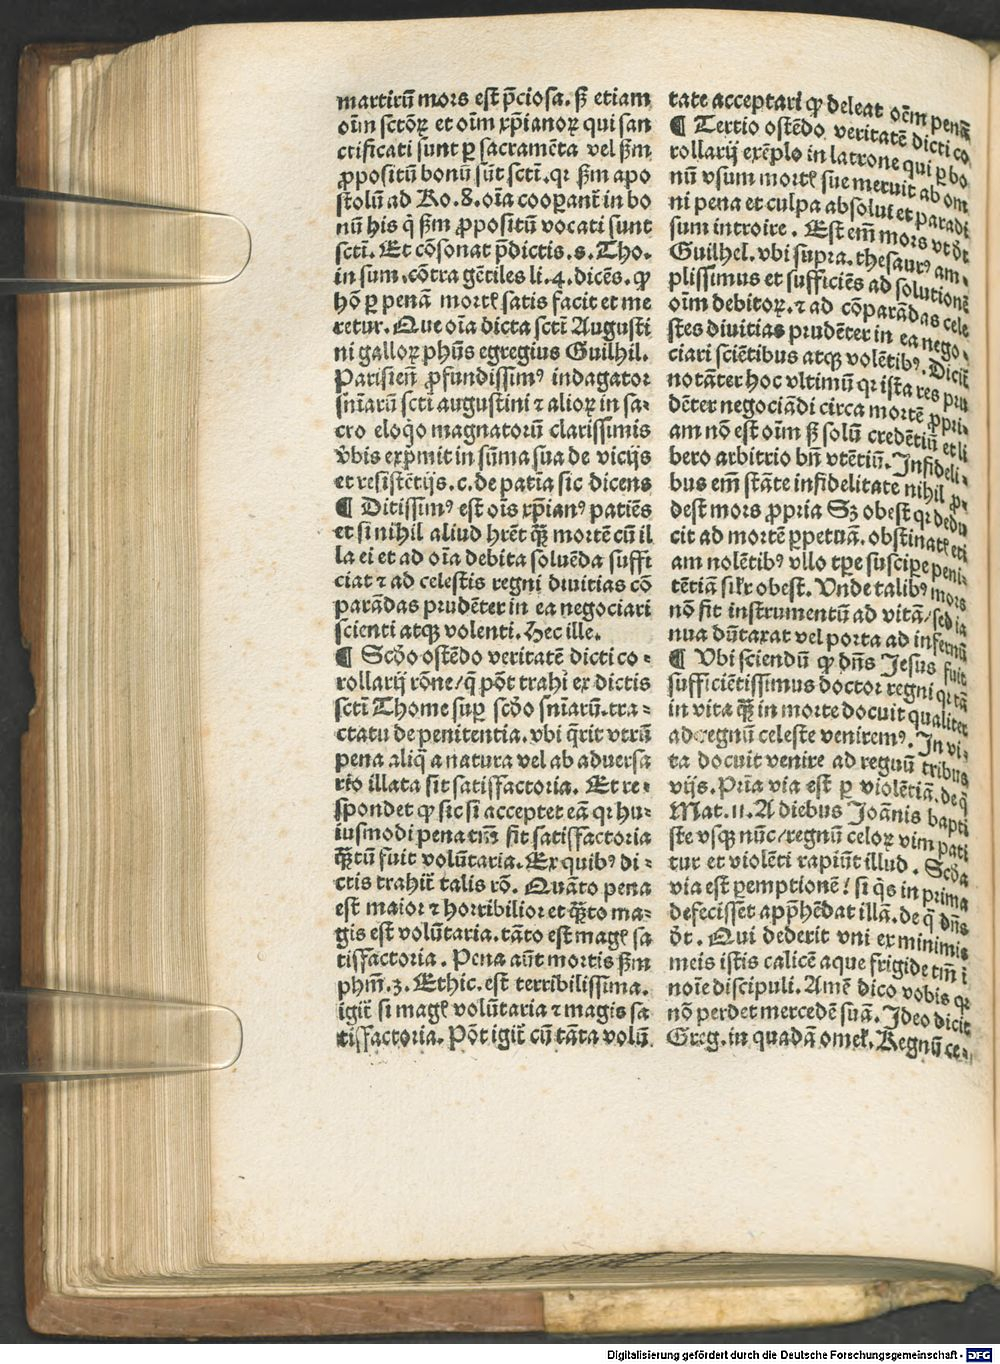 martirū mors est p̄ciosa. sꝫ etiam
oīm sctōꝝ et oīm xp̄ianoꝝ qui san
ctificati sunt ꝑ sacramēta vel ẜm
ꝓpositū bonū sūt sctī. qꝛ ẜm apo
stolū ad Ro. 8. oīa cooꝑant̄ in bo
nū his q̄ ẜm ꝓpositū vocati sunt
sctī. Et cōsonat p̄dictis. s. Tho.
in sum. cōtra gētiles li. 4. dicēs. ꝙ
hō ꝑ penā mortꝭ satis facit et me
retur. Que oīa dicta sctī Augusti
ni galloꝝ phūs egregius Guilhil.
Parisieñ ꝓfundissimꝰ indagator
sn̄iarū sctī augustini ⁊ alioꝝ in sa⸗
cro eloq̇o magnatorū clarissimis
v̄bis exp̄mit in sūma sua de vicijs
et resistētijs. c. de patīa sic dicens
¶ Ditissimꝰ est oīs xp̄ianꝰ patiēs
et si nihil aliud hr̄et qꝫ mortē cū il
la ei et ad oīa debita soluēda suffi
ciat ⁊ ad celestis regni diuitias cō
parādas prudēter in ea negociari
scienti atqꝫ volenti. Hec ille.
¶ Scd̄o ostēdo veritatē dicti co⸗
rollarij rōne/q̄ pōt trahi ex dictis
sctī Thome suꝑ scd̄o sn̄iarū. tra⸗
ctatu de penitentia. vbi q̄rit vtrū
pena aliq̄ a natura vel ab aduersa
rio illata sit satisfactoria. Et re⸗
spondet ꝙ sic si acceptet eā qꝛ hu⸗
iusmodi pena tm̄ fit satisfactoria
qꝫtū fuit volūtaria. Ex quibꝰ di⸗
ctis trahit̄ talis rō. Quāto pena
est maior ⁊ horribilior et qꝫto ma⸗
gis est volūtaria. tāto est magꝭ sa
tisfactoria. Pena aūt mortis ẜm
phm̄. 3. Ethic. est terribilissima.
igit̄ si magꝭ volūtaria ⁊ magis sa
tisfactoria. Pōt igit̄ cū tāta volū
tate acceptari ꝙ deleat oēm penā
¶ Tertio ostēdo veritatē dicti co
rollarij exēplo in latrone qui ꝑ bo
nū vsum mortꝭ sue meruit ab om
ni pena et culpa absolui et paradi
sum introire. Est em̄ mors vt d̄t
Guilhel. vbi supra. thesaurꝰ am⸗
plissimus et sufficiēs ad solutionē
oīm debitoꝝ. ⁊ ad cōparādas cele
stes diuitias prudēter in ea nego⸗
ciari sciētibus atqꝫ volētibꝰ. Dicit̄
notāter hoc vltimū qꝛ ista res pru
dēter negociādi circa mortē ꝓpri⸗
am nō est oīm sꝫ solū credētiū et li
bero arbitrio bn̄ vtētiū. Infideli⸗
bus em̄ stāte infidelitate nihil ꝓ⸗
dest mors ꝓpria Sꝫ obest qꝛ dedu
cit ad mortē ꝑpetuā. obstinatꝭ eti
am nolētibꝰ vllo tꝑe suscipe peni⸗
tētiā silr̄ obest. Vnde talibꝰ mors
nō fit instrumentū ad vitā/sed ia
nua dūtaxat vel porta ad infernū
¶ Vbi sciendū ꝙ dn̄s Jesus fuit
sufficiētissimus doctor regni qꝛ tā
in vita qꝫ in morte docuit qualiter
ad regnū celeste veniremꝰ. In vi⸗
ta docuit venire ad regnū tribus
vijs. Prīa via est ꝑ violētiā. de q̄
Mat. 11. A diebus Joānis bapti
ste vsqꝫ nūc/regnū celoꝝ vim pati
tur et violēti rapiūt illud. Scd̄a
via est ꝑ emptionē/ si q̄s in prima
defecisset app̄hēdat illā. de q̄ dn̄s
d̄t. Qui dederit vni ex minimis
meis istis calicē aque frigide tm̄ ī
noīe discipuli. Amē dico vobis qꝛ
nō perdet mercedē suā. Ideo dicit
Greg. in quadā omeł. Regnū ce⸗
Digitalisierung gefördert durch die Deutsche Forschungsgemeinschaft - DFG